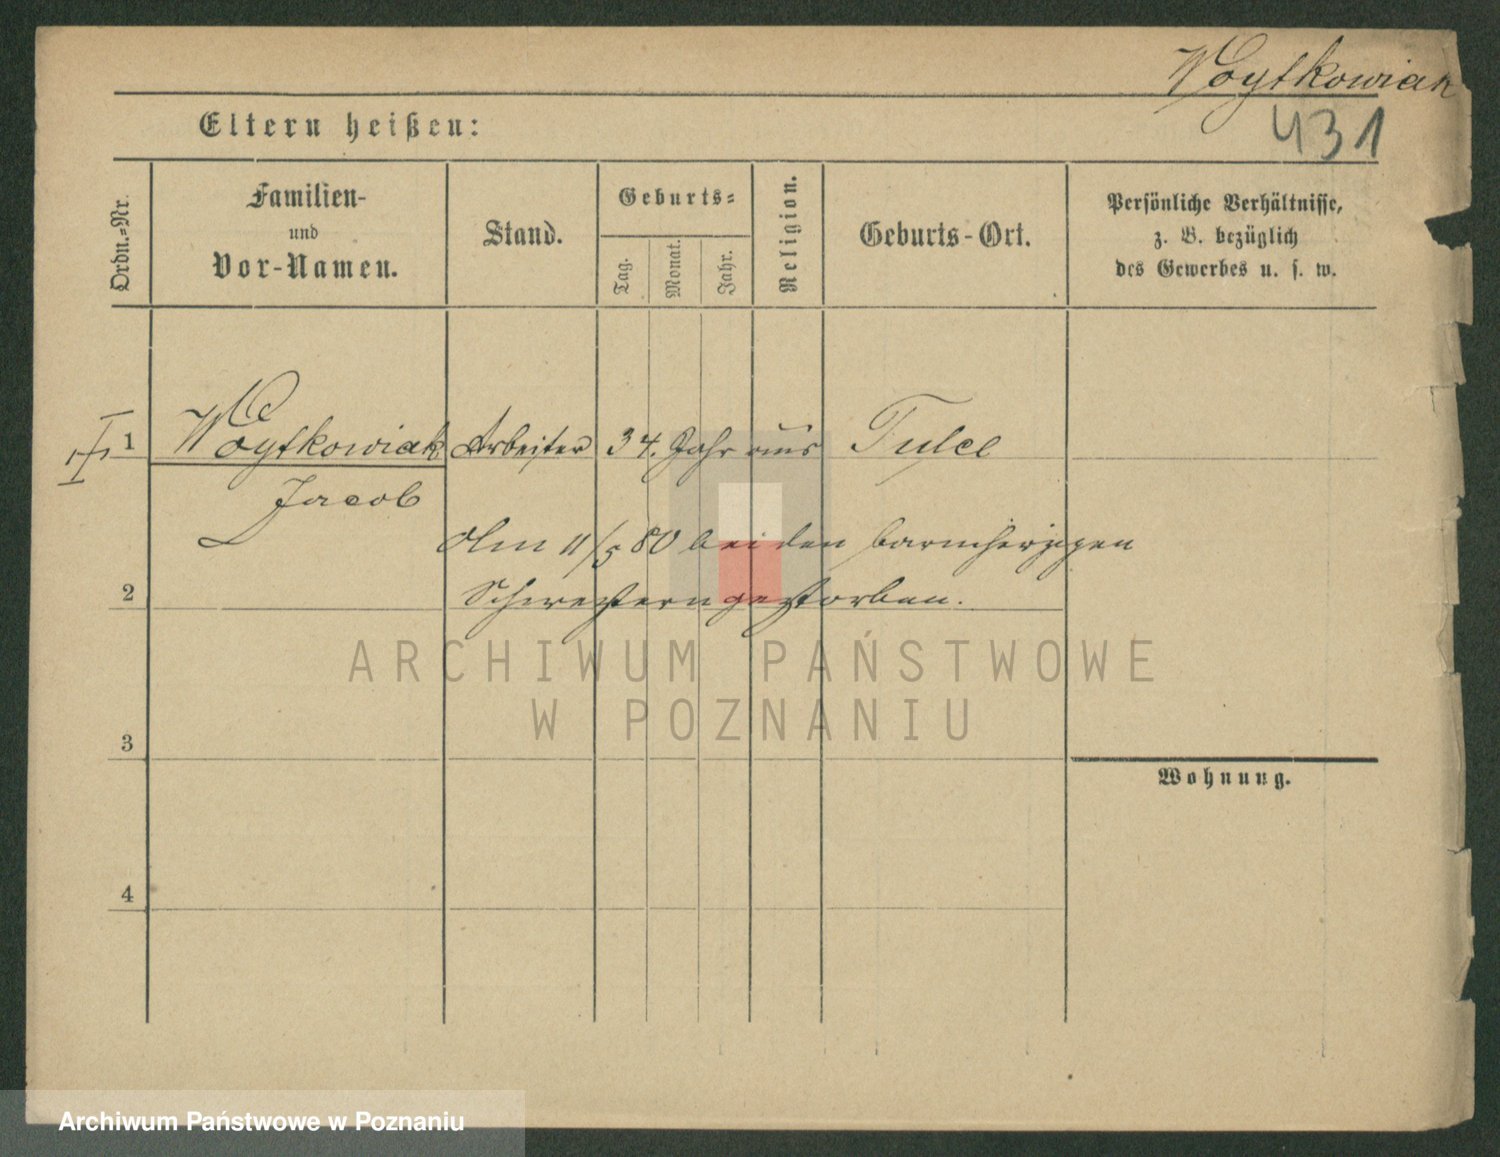 Woytkowiak
431
Eltern heißen:
Ordn.-Nr.
Familien-
und
Vor-Namen.
Stand.
Geburts-
Tag.
Monat.
Jahr.
Religion.
Geburts-Ort.
Persönliche Verhältnisse,
z. B. bezüglich
des Gewerbes u. s. w.
1 Woytkowiak Arbeiter 34. Jahr aus Tulce
Jacob
Am 11/5 80 bei den barmherzigen
2 Schwestern gestorben.
ARCHIWUM PAŃSTWOWE
W POZNANIU
3
Wohnung.
4
Archiwum Państwowe w Poznaniu